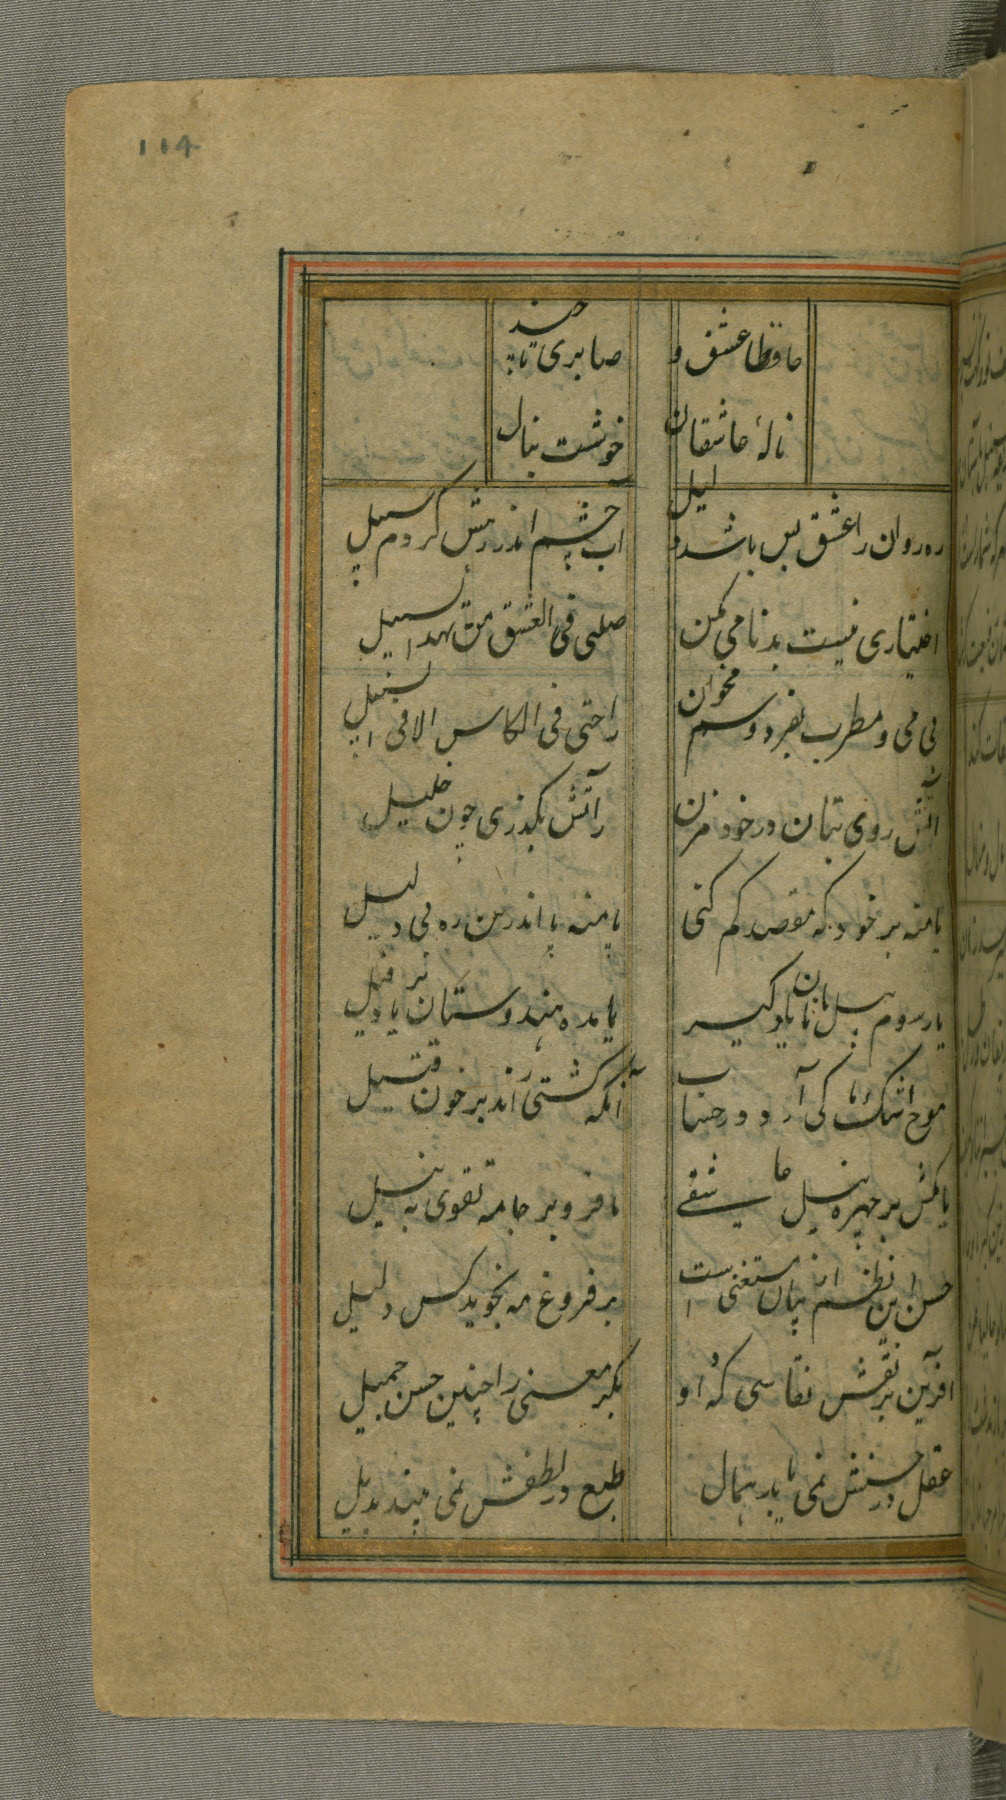 114
حافظا عشق و صابری تا چند
نالهٔ عاشقان خوشست بنال
ره روان را عشق بس باشد دلیل
آب چشم اندر رهش کردم سبیل
اختیاری نیست بدنامی من
ضلنی فی العشق من یهد السبیل
بی می و مطرب بفردوسم مخوان
راحتی فی الکاس لا فی السلسبیل
آتش روی بتان در خود مزن
رآتش بگذری چون خلیل
یا منه بر خود که مقصد کم کنی
یا منه پا اندرین ره بی دلیل
یا رسوم پیل بانان یاد گیر
یا مده هندوستان یاد پیل
موج اشک ما کی آرد در حساب
آنکه کشتی راند بر خون قتیل
یا مکش بر چهره نیل عاشقی
یا فرو بر جامه تقوی به نیل
حسن این نظم از بیان مستغنی است
بر فروغ مه نجوید کس دلیل
آفرین بر نقش نقاشی که او
بکر معنی را چنین حسن جمیل
عقل در حسنش نمی یابد همال
طبع در لطفش نمی بیند بدیل